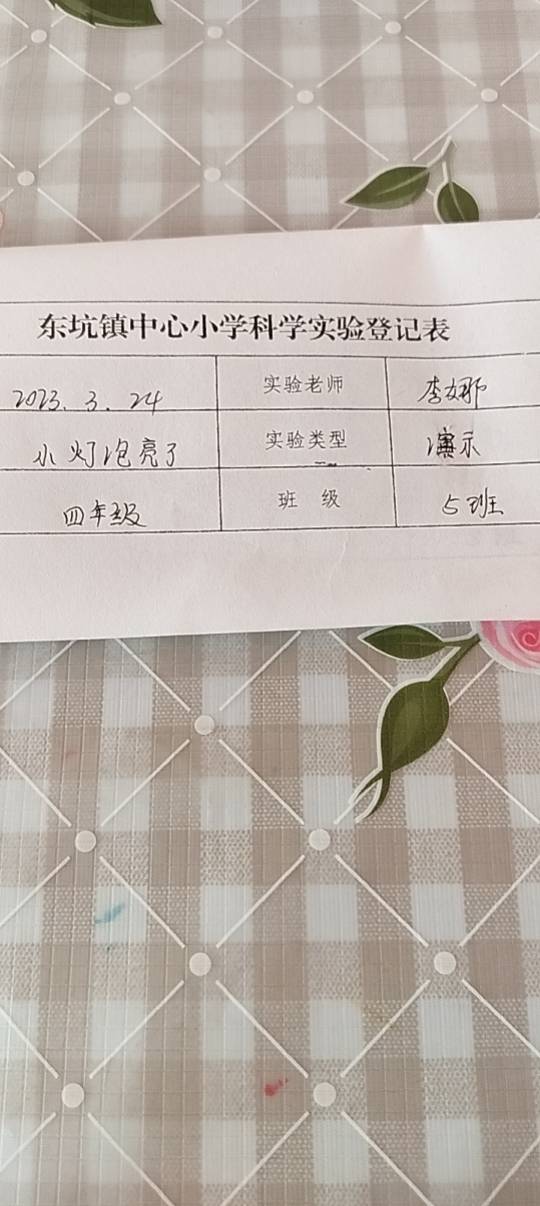 东坑镇中心小学科学实验登记表
2023.3.24 实验老师 李娜
小灯泡亮了 实验类型 演示
四年级 班 级 5班